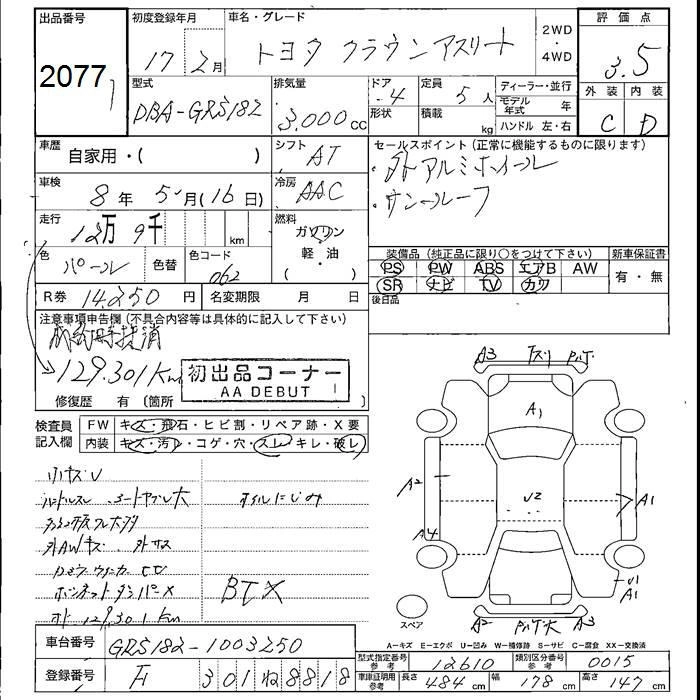 出品番号 初度登録年月 車名・グレード 2WD・4WD 評価点
2077 17 2月 トヨタ クラウン アスリート 3.5
型式 排気量 ドア 4 定員 5人 ディーラー・並行 外装 内装
DBA-GRS182 3.000cc 形状 積載 kg モデル年式 年 C D
ハンドル 左・右
車歴 自家用・( ) シフト AT セールスポイント(正常に機能するものに限ります)
・外アルミホイール
車検 8年 5月(16日) 冷房 AAC ・サンルーフ
走行 12万 9千 km 燃料 ガソリン 軽・油 ( )
装備品(純正品に限り○をつけて下さい) 新車保証書
色 パール 色替 色コード 062 PS PW ABS エアB AW 有・無
SR ナビ TV カワ
R券 14250円 名変期限 月 日 後日品
注意事項申告欄(不具合内容等は具体的に記入して下さい)
129.301Km 初出品コーナー
AA DEBUT
修復歴 有(箇所
検査員記入欄 FW キズ・飛石・ヒビ割・リペア跡・X要
内装 キズ・汚レ・コゲ・穴・スレ・キレ・破レ
小キズU
シートヤブレ大 オイルにじみ
外AWキズ 外サス
ボンネットダンパーX BTX
オド 129.301Km
A3 A1 A2 U2 A1 A4 U1 A1 A2 A3
スペア
A-キズ E-エクボ U-凹み W-補修跡 S-サビ C-腐食 XX-交換済
車台番号 GRS182-1003250 型式指定番号 参考 12610 類別区分番号 参考 0015
登録番号 301 ね 8818 車庫証明用 参考 長さ 484cm 幅 178cm 高さ 147cm